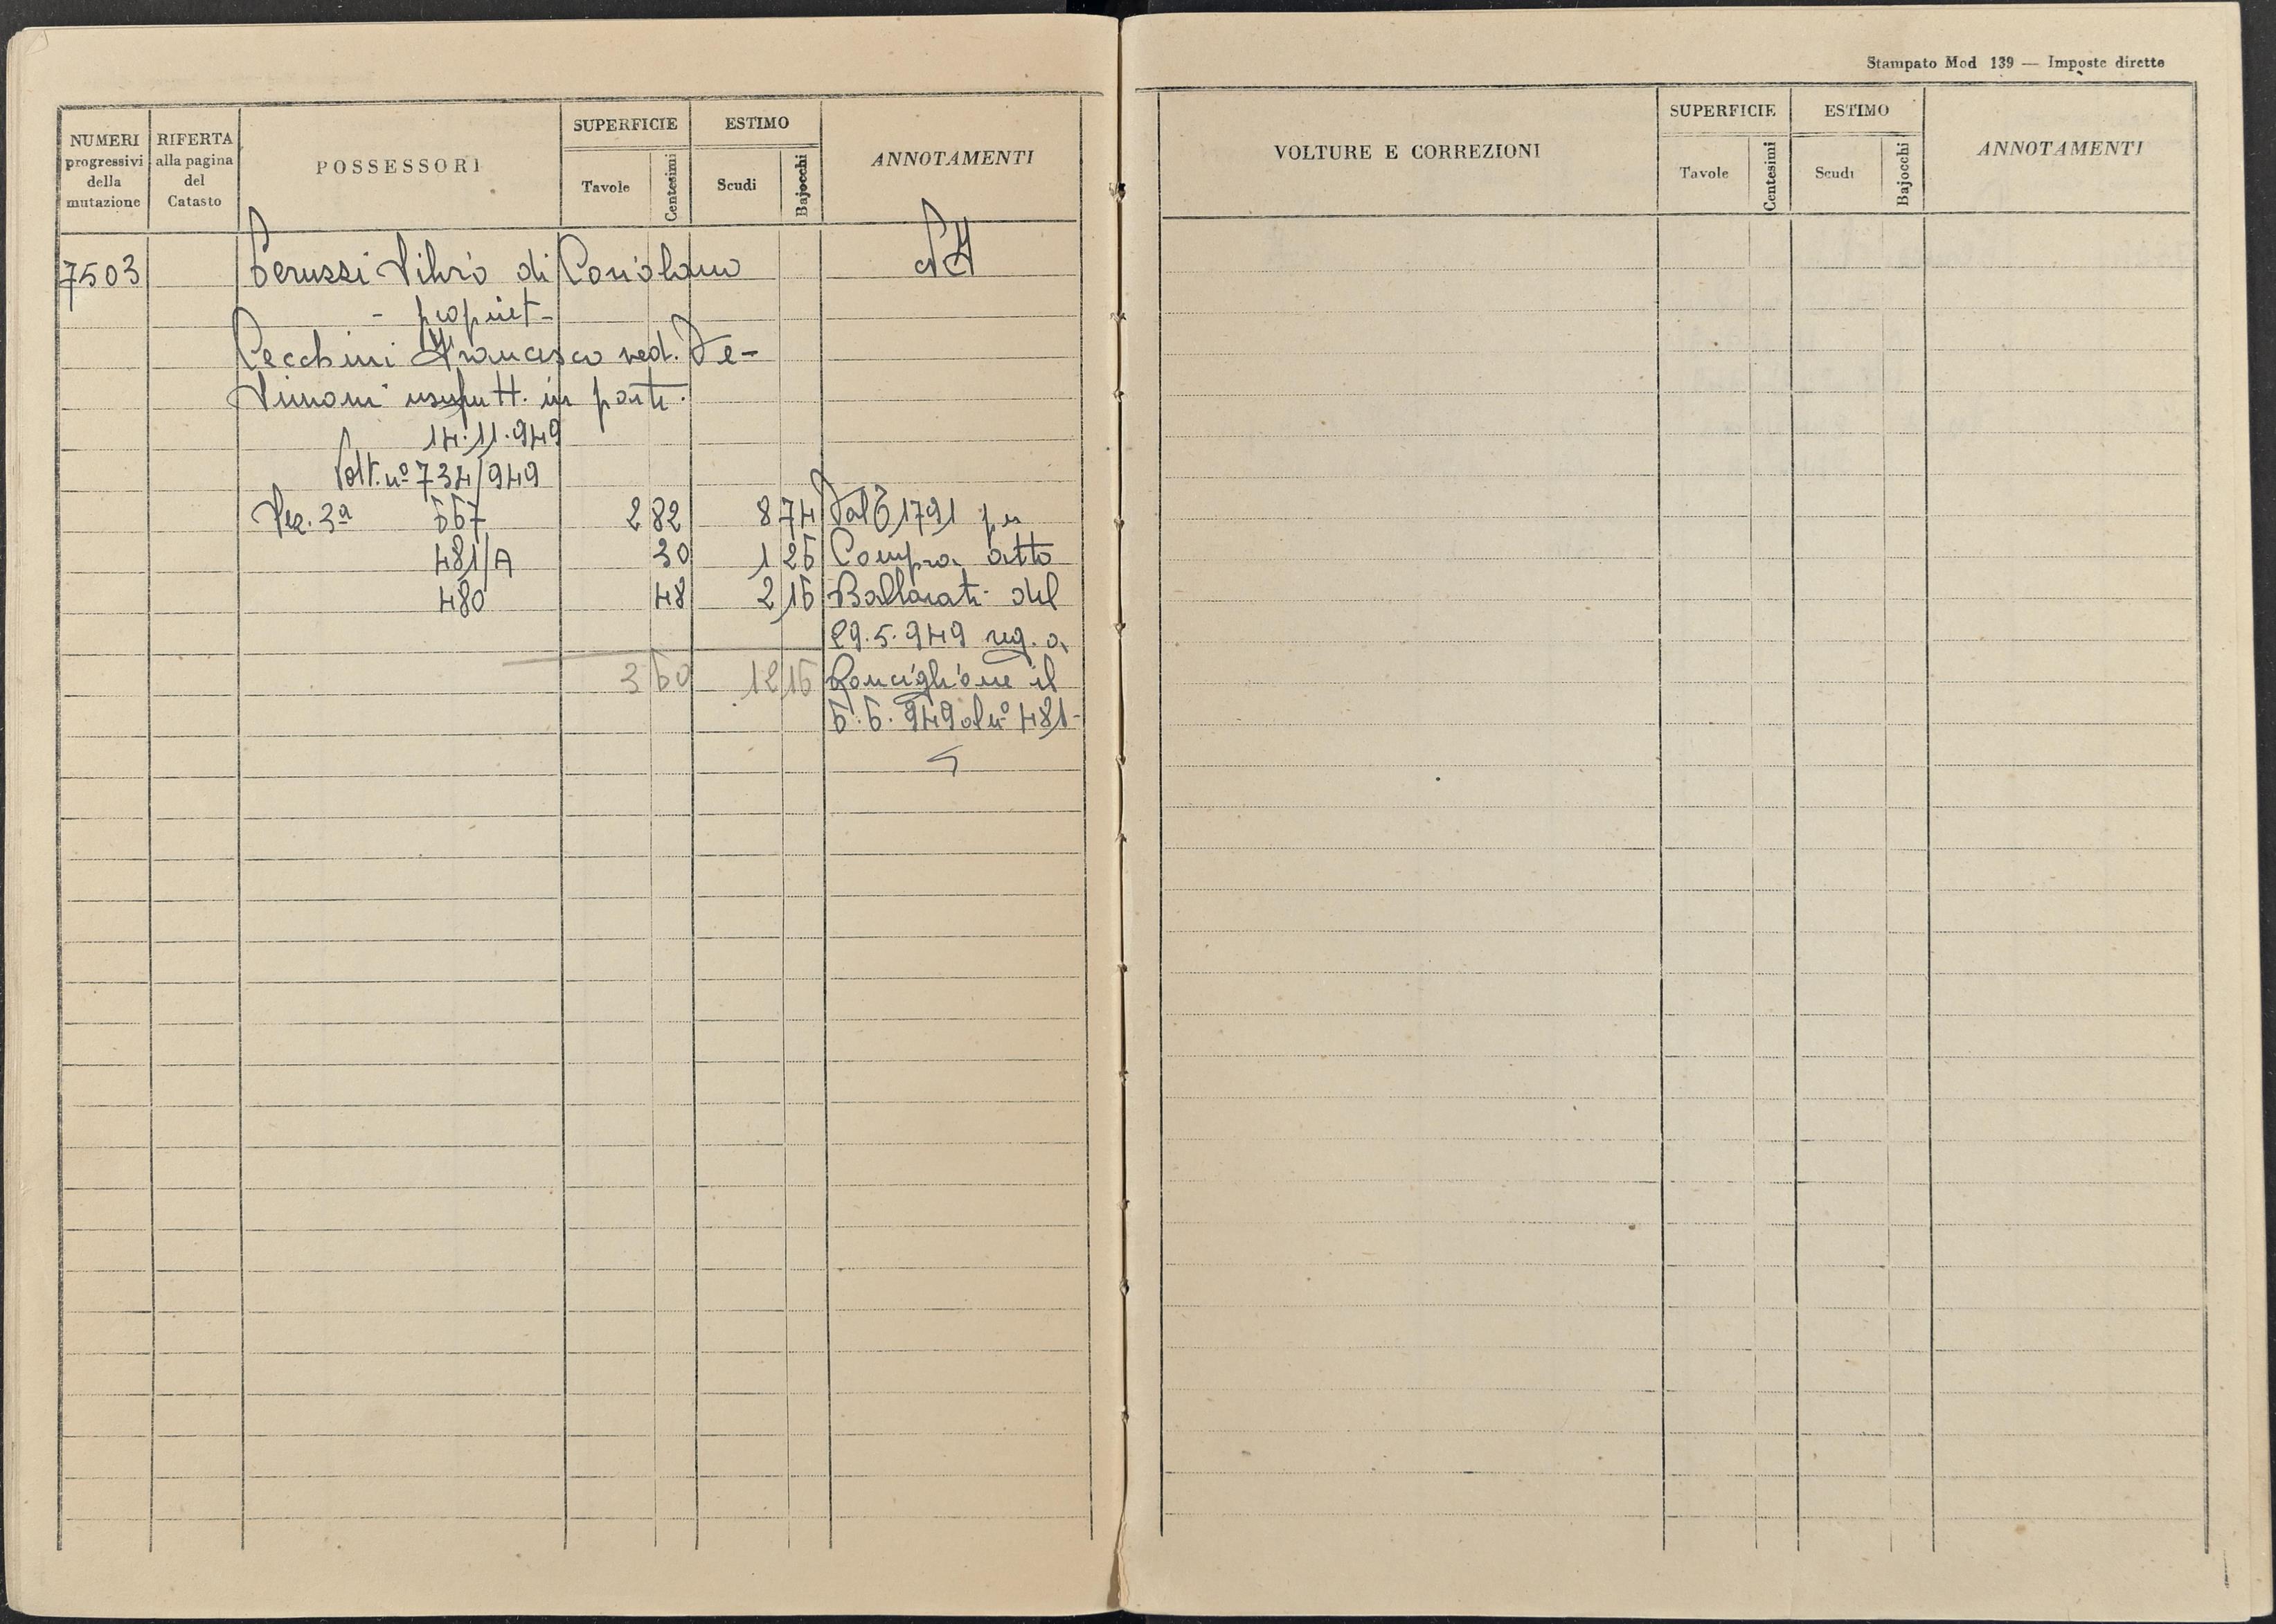 NUMERI progressivi della mutazione
RIFERTA alla pagina del Catasto
POSSESSORI
SUPERFICIE
Tavole
Centesimi
ESTIMO
Scudi
Bajocchi
ANNOTAMENTI
7503 Perussi Silvio di Coriolano
- propriet-
Cecchini Francesca ved. De-
Simoni usufrutt. in parte.
14.11.949
Volt. nº 734/949
Sez. 3ª 667 2 82 8 74 Dal 1791 per
481/A 30 1 26 Compra atto
480 48 2 16 Ballarati del
29.5.949 reg. a
3 60 12 16 Ronciglione il
6.6.949 al nº 481-
Stampato Mod 139 — Imposte dirette
VOLTURE E CORREZIONI
SUPERFICIE
Tavole
Centesimi
ESTIMO
Scudi
Bajocchi
ANNOTAMENTI